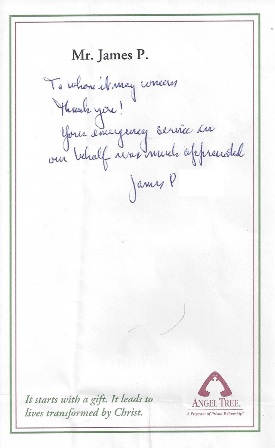 Mr. James P.
To whom it may concern
Thank you!
Your emergency service in
our behalf was much appreciated
James P
It starts with a gift. It leads to
lives transformed by Christ.
ANGEL TREE.
A Program of Prison Fellowship